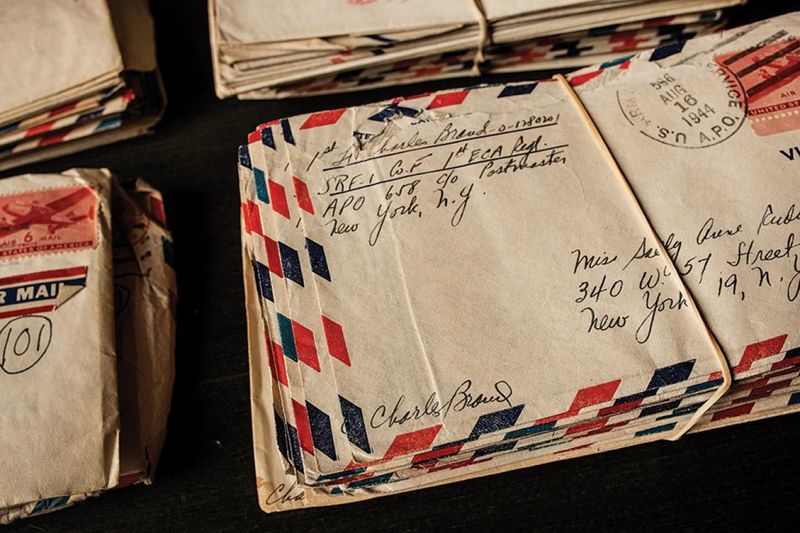 1st Lt. Charles Braud - O-1280201
SRF-1 W.F 1st ECA Regt.
APO 658 c/o Postmaster
New York, N.Y.
586
AUG
16
1944
U.S. A.P.O.
SERVICE
AIR
UNITED STATES
VI
Miss Sally Anne Rud
340 W. 57 Street
New York 19, N.Y
Charles Braud
Cha
6 MAIL
STATES OF AMERICA
R MAIL
101